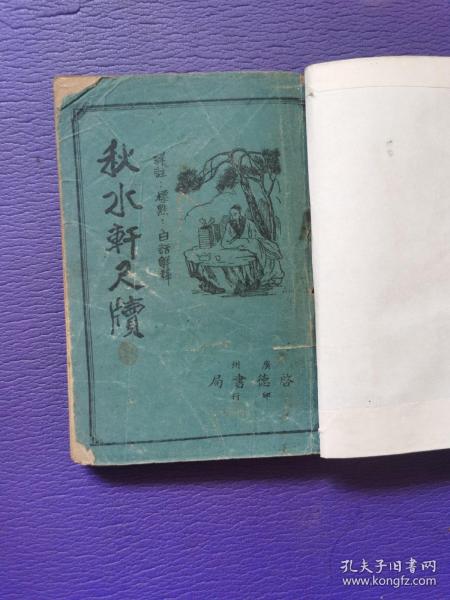 秋水軒尺牘
詳註·標點·白話解釋
廣州
啓德書局
印行
孔夫子旧书网
www.kongfz.com